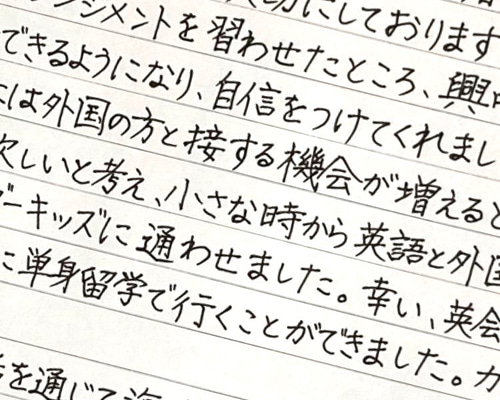 にしております
ンジメントを習わせたところ、興
できるようになり、自信をつけてくれまし
は外国の方と接する機会が増えると
欠しいと考え、小さな時から英語と外国
ーキッズに通わせました。幸い、英会
に単身留学で行くことができました。カ
を通じて海